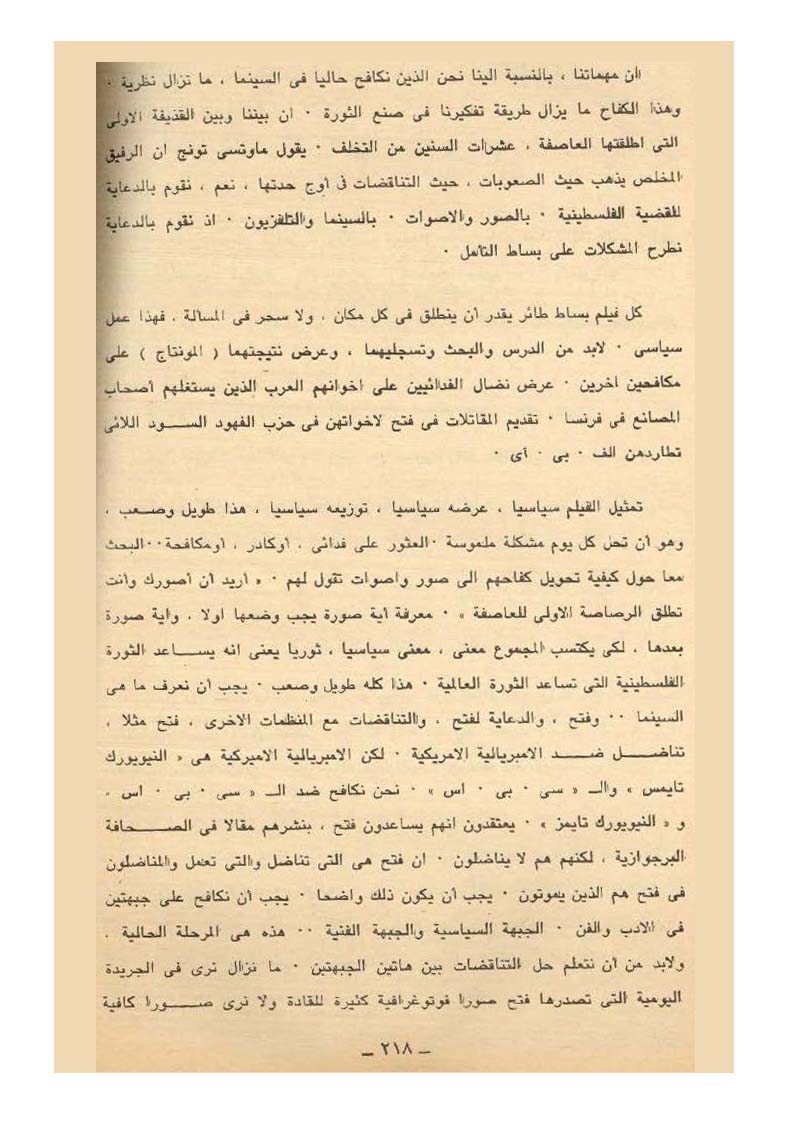 ان مهماتنا ، بالنسبة الينا نحن الذين نكافح حاليا فى السينما ، ما تزال نظرية ·
وهذا الكفاح ما يزال طريقة تفكيرنا فى صنع الثورة · ان بيننا وبين القذيفة الاولى
التى اطلقتها العاصفة ، عشرات السنين من التخلف · يقول ماوتسى تونج ان الرفيق
المخلص يذهب حيث الصعوبات ، حيث التناقضات فى أوج حدتها ، نعم ، نقوم بالدعاية
للقضية الفلسطينية · بالصور والاصوات · بالسينما والتلفزيون · اذ نقوم بالدعاية
نطرح المشكلات على بساط التأمل ·
كل فيلم بساط طائر يقدر أن ينطلق فى كل مكان ، ولا سحر فى المسألة ، فهذا عمل
سياسى · لابد من الدرس والبحث وتسجليهما ، وعرض نتيجتهما ( المونتاج ) على
مكافحين آخرين · عرض نضال الفدائيين على اخوانهم العرب الذين يستغلهم أصحاب
المصانع فى فرنسا · تقديم المقاتلات فى فتح لاخواتهن فى حزب الفهود الســود اللائى
تطاردهن الف · بى · أى ·
تمثيل الفيلم سياسيا ، عرضه سياسيا ، توزيعه سياسيا ، هذا طويل وصعب ،
وهو أن تحل كل يوم مشكلة ملموسة ·العثور على فدائى ، أوكادر ، أومكافحة··البحث
معا حول كيفية تحويل كفاحهم الى صور واصوات تقول لهم · « أريد أن أصورك وأنت
تطلق الرصاصة الاولى للعاصفة » · معرفة أية صورة يجب وضعها اولا ، واية صورة
بعدها ، لكى يكتسب المجموع معنى ، معنى سياسيا ، ثوريا يعنى انه يســاعد الثورة
الفلسطينية التى تساعد الثورة العالمية · هذا كله طويل وصعب · يجب أن نعرف ما هى
السينما ·· وفتح ، والدعاية لفتح ، والتناقضات مع المنظمات الاخرى ، فتح مثلا ،
تناضــل ضــد الامبريالية الامريكية · لكن الامبريالية الاميركية هى « النيويورك
تايمس » والـ « سى · بى · اس » · نحن نكافح ضد الـ « سى · بى · اس »
و « النيويورك تايمز » · يعتقدون انهم يساعدون فتح ، بنشرهم مقالا فى الصــحافة
البرجوازية ، لكنهم هم لا يناضلون · ان فتح هى التى تناضل والتى تعمل والمناضلون
فى فتح هم الذين يموتون · يجب أن يكون ذلك واضحا · يجب أن نكافح على جبهتين
فى الادب والفن · الجبهة السياسية والجبهة الفنية ·· هذه هى المرحلة الحالية ،
ولابد من أن نتعلم حل التناقضات بين هاتين الجبهتين · ما نزال نرى فى الجريدة
اليومية التى تصدرها فتح صورا فوتوغرافية كثيرة للقادة ولا نرى صــورا كافية
ــ ٢١٨ ــ